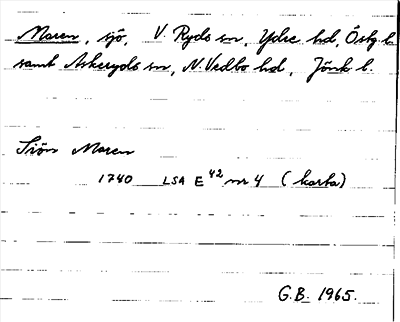 Maren, sjö, V. Ryds sn, Ydre hd, Östg. l.
samt Askeryds sn, N. Vedbo hd, Jönk l.
Siön Maren
1740 LSA E42 nr 4 (karta)
G.B. 1965.